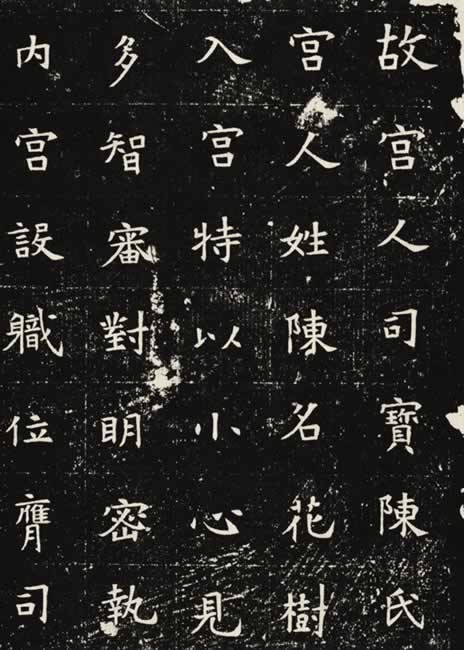 故宮人司寶陳氏
宮人姓陳名花樹
入宮特以小心見
多智審對明密執
內宮設職位膺司